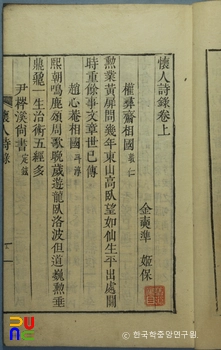 懷人詩錄卷上
金奭準 姬保
權彝齋相國 敦仁
勲業黃扉問幾年東山高臥望如仙生平出處關
時重餘事文章世已傳
趙心菴相國 斗淳
熙朝鳴鹿頌周歌晩歲遊龍臥洛波但道巍勲垂
鼎鼐一生治術五經多
尹稺溪尙書 定鉉
懷人詩錄
한국학중앙연구원